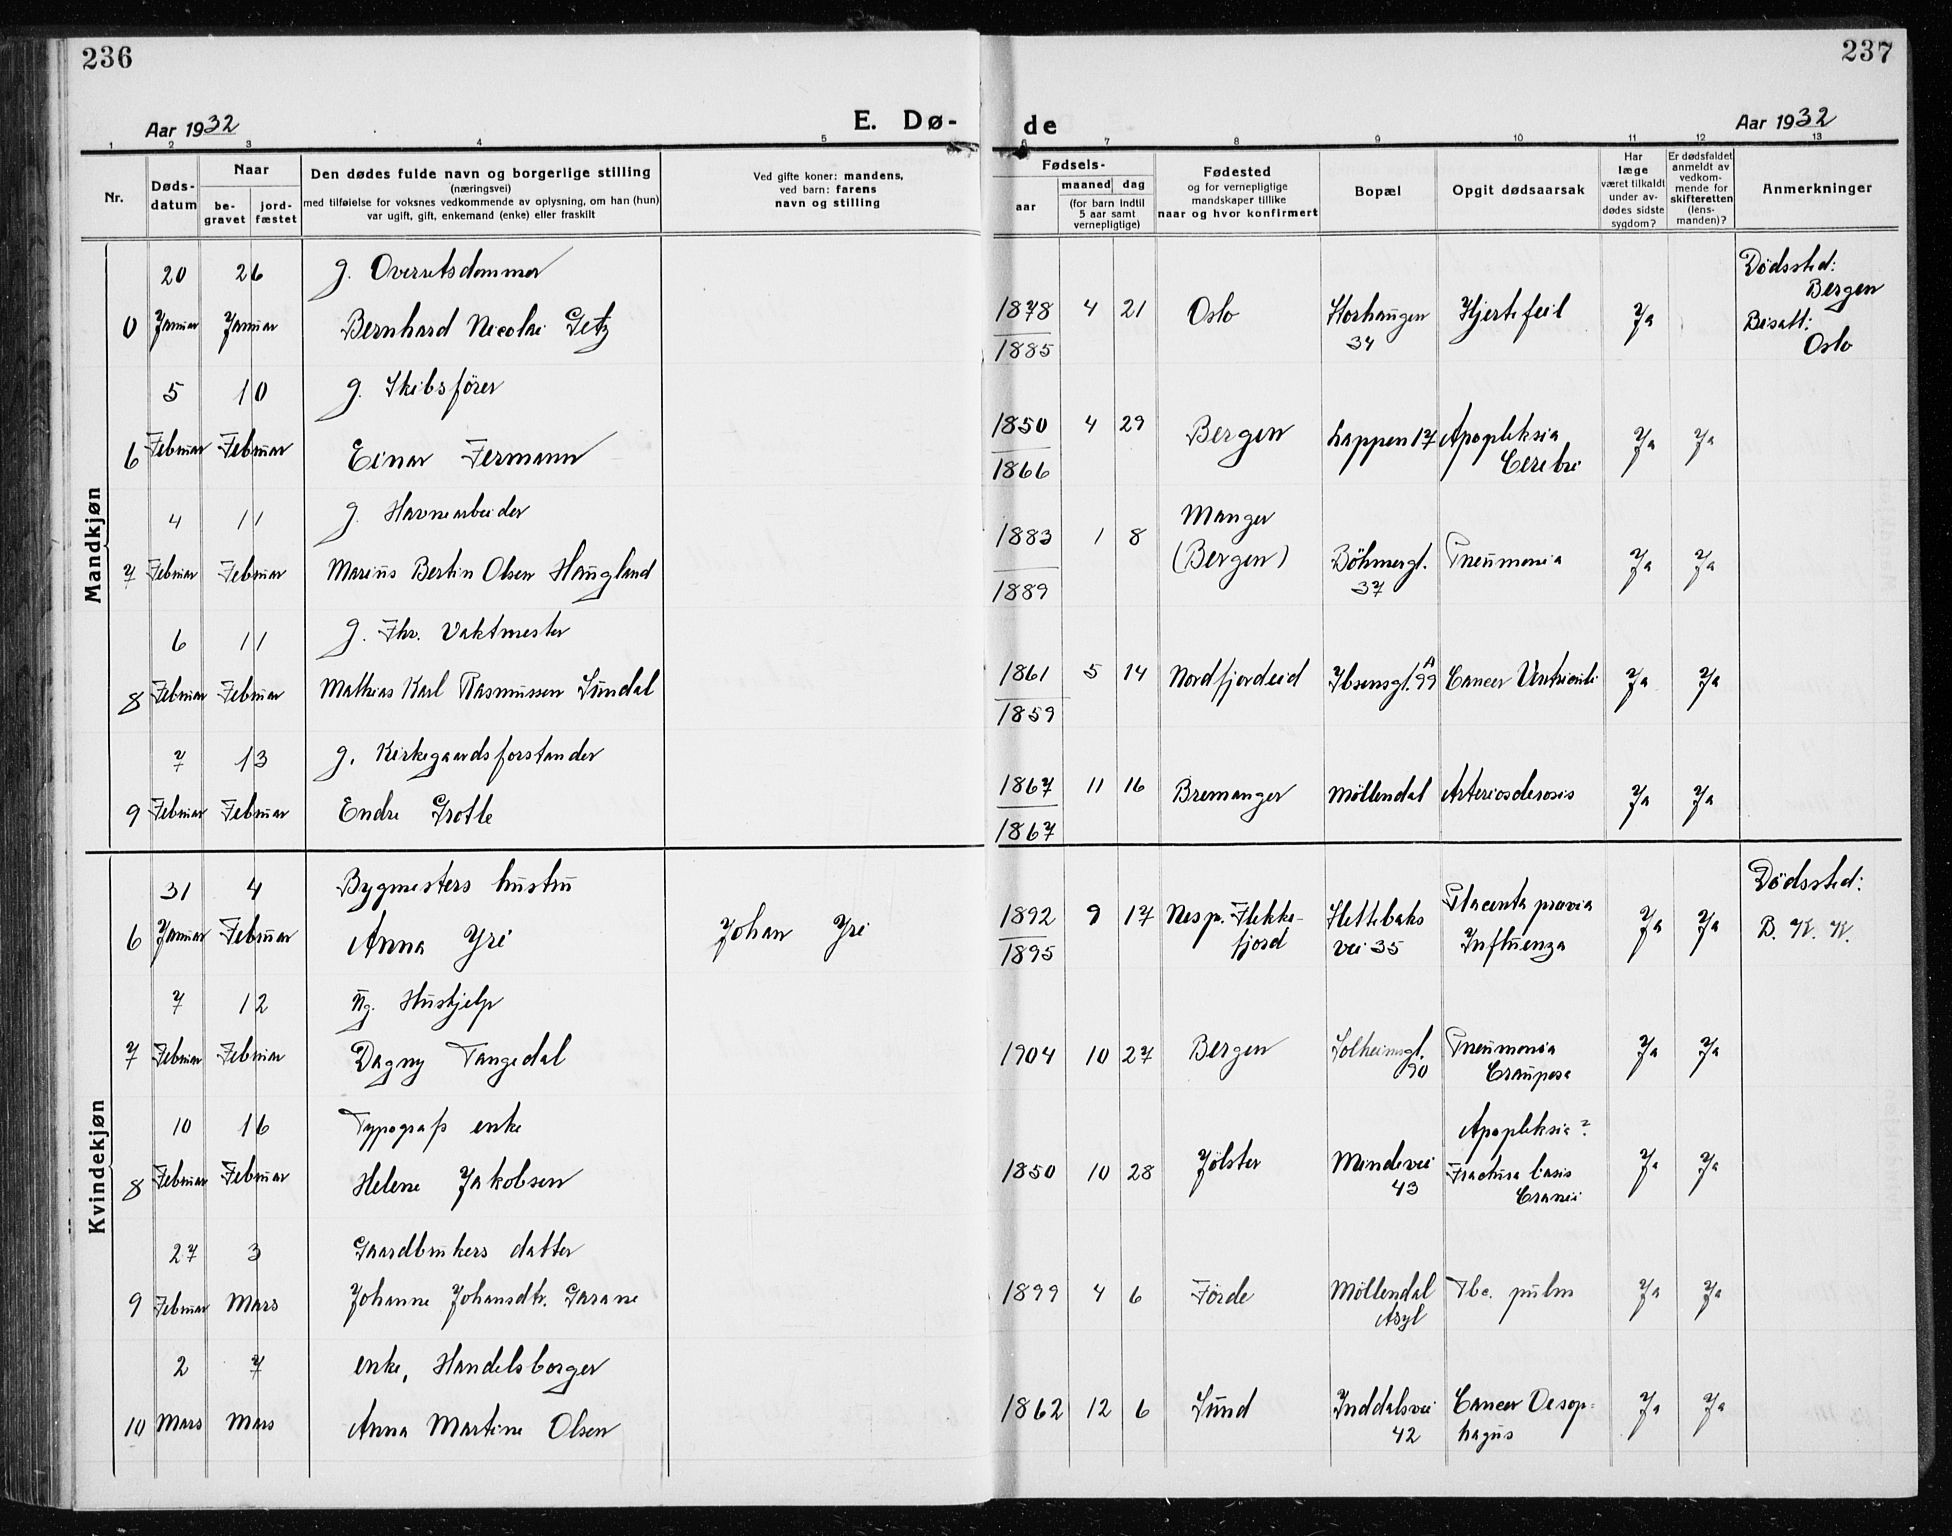 236
237
Aar 1932
E. Dø-
de
Aar 1932
1 2 3 4 5 6 7 8 9 10 11 12 13
Nr.
Døds-
datum
Naar
be-
gravet
jord-
fæstet
Den dødes fulde navn og borgerlige stilling
(næringsvei)
med tilføielse for voksnes vedkommende av oplysning, om han (hun)
var ugift, gift, enkemand (enke) eller fraskilt
Ved gifte koner: mandens,
ved barn: farens
navn og stilling
Fødsels-
aar
maaned dag
(for barn indtil
5 aar samt
vernepligtige)
Fødested
og for vernepligtige
mandskaper tillike
naar og hvor konfirmert
Bopæl
Opgit dødsaarsak
Har
læge
været tilkaldt
under av-
dødes sidste
sygdom?
Er dødsfaldet
anmeldt av
vedkom-
mende for
skifteretten
(lens-
manden)?
Anmerkninger
Mandkjøn
20 26 g. Overretsdommer
0 Januar Januar Bernhard Nicolai Getz
1878 4 21 Oslo Storhaugen Hjertefeil Ja
1885 34
Dödssted:
Bergen
Bisatt:
Oslo
5 10 g. Skibsförer
6 Februar Februar Einar Fermann
1850 4 29 Bergen Lappen 17 Apopleksia Ja Ja
1866 Cerebri
4 11 g. Havnearbeider
7 Februar Februar Marius Bertin Olsen Haugland
1883 1 8 Manger
(Bergen) Böhmergt. Pneumonia Ja Ja
1889 37
6 11 g. Fhv. Vaktmester
8 Februar Februar Mathias Karl Rasmussen Sundal
1861 5 14 Nordfjordeid Ibsensgt. 99 A Cancer Ventriculi Ja Ja
1859
7 13 g. Kirkegaardsforstander
9 Februar Februar Endre Grotle
1867 11 16 Bremanger Möllendal Arteriosclerosis Ja Ja
1867
Kvindekjøn
31 4 Bygmesters hustru
6 Januar Februar Anna Yri Johan Yri
1892 9 17 Nes p. Flekke- Slettebaks Placenta prævia Ja Ja
1895 fjord vei 35 Influenza
Dödssted:
B. K. K.
7 12 Ug. Hushjelp
7 Februar Februar Dagny Tangedal
1904 10 27 Bergen Solheimsgt. Pneumonia Ja Ja
90 Crouposa
10 16 Typografs enke
8 Februar Februar Helene Jakobsen
1850 10 28 Jölster Mindevei Apopleksia?
43 Fractura basis Ja Ja
Cranii
27 3 Gaardbrukers datter
9 Februar Mars Johanne Johansdtr. Garane
1899 4 6 Förde Möllendal Tbc. pulm Ja Ja
Asyl
2 7 enke, Handelsborger
10 Mars Mars Anna Martine Olsen
1862 12 6 Sund Inddalsvei Cancer Oesop- Ja Ja
42 hagus